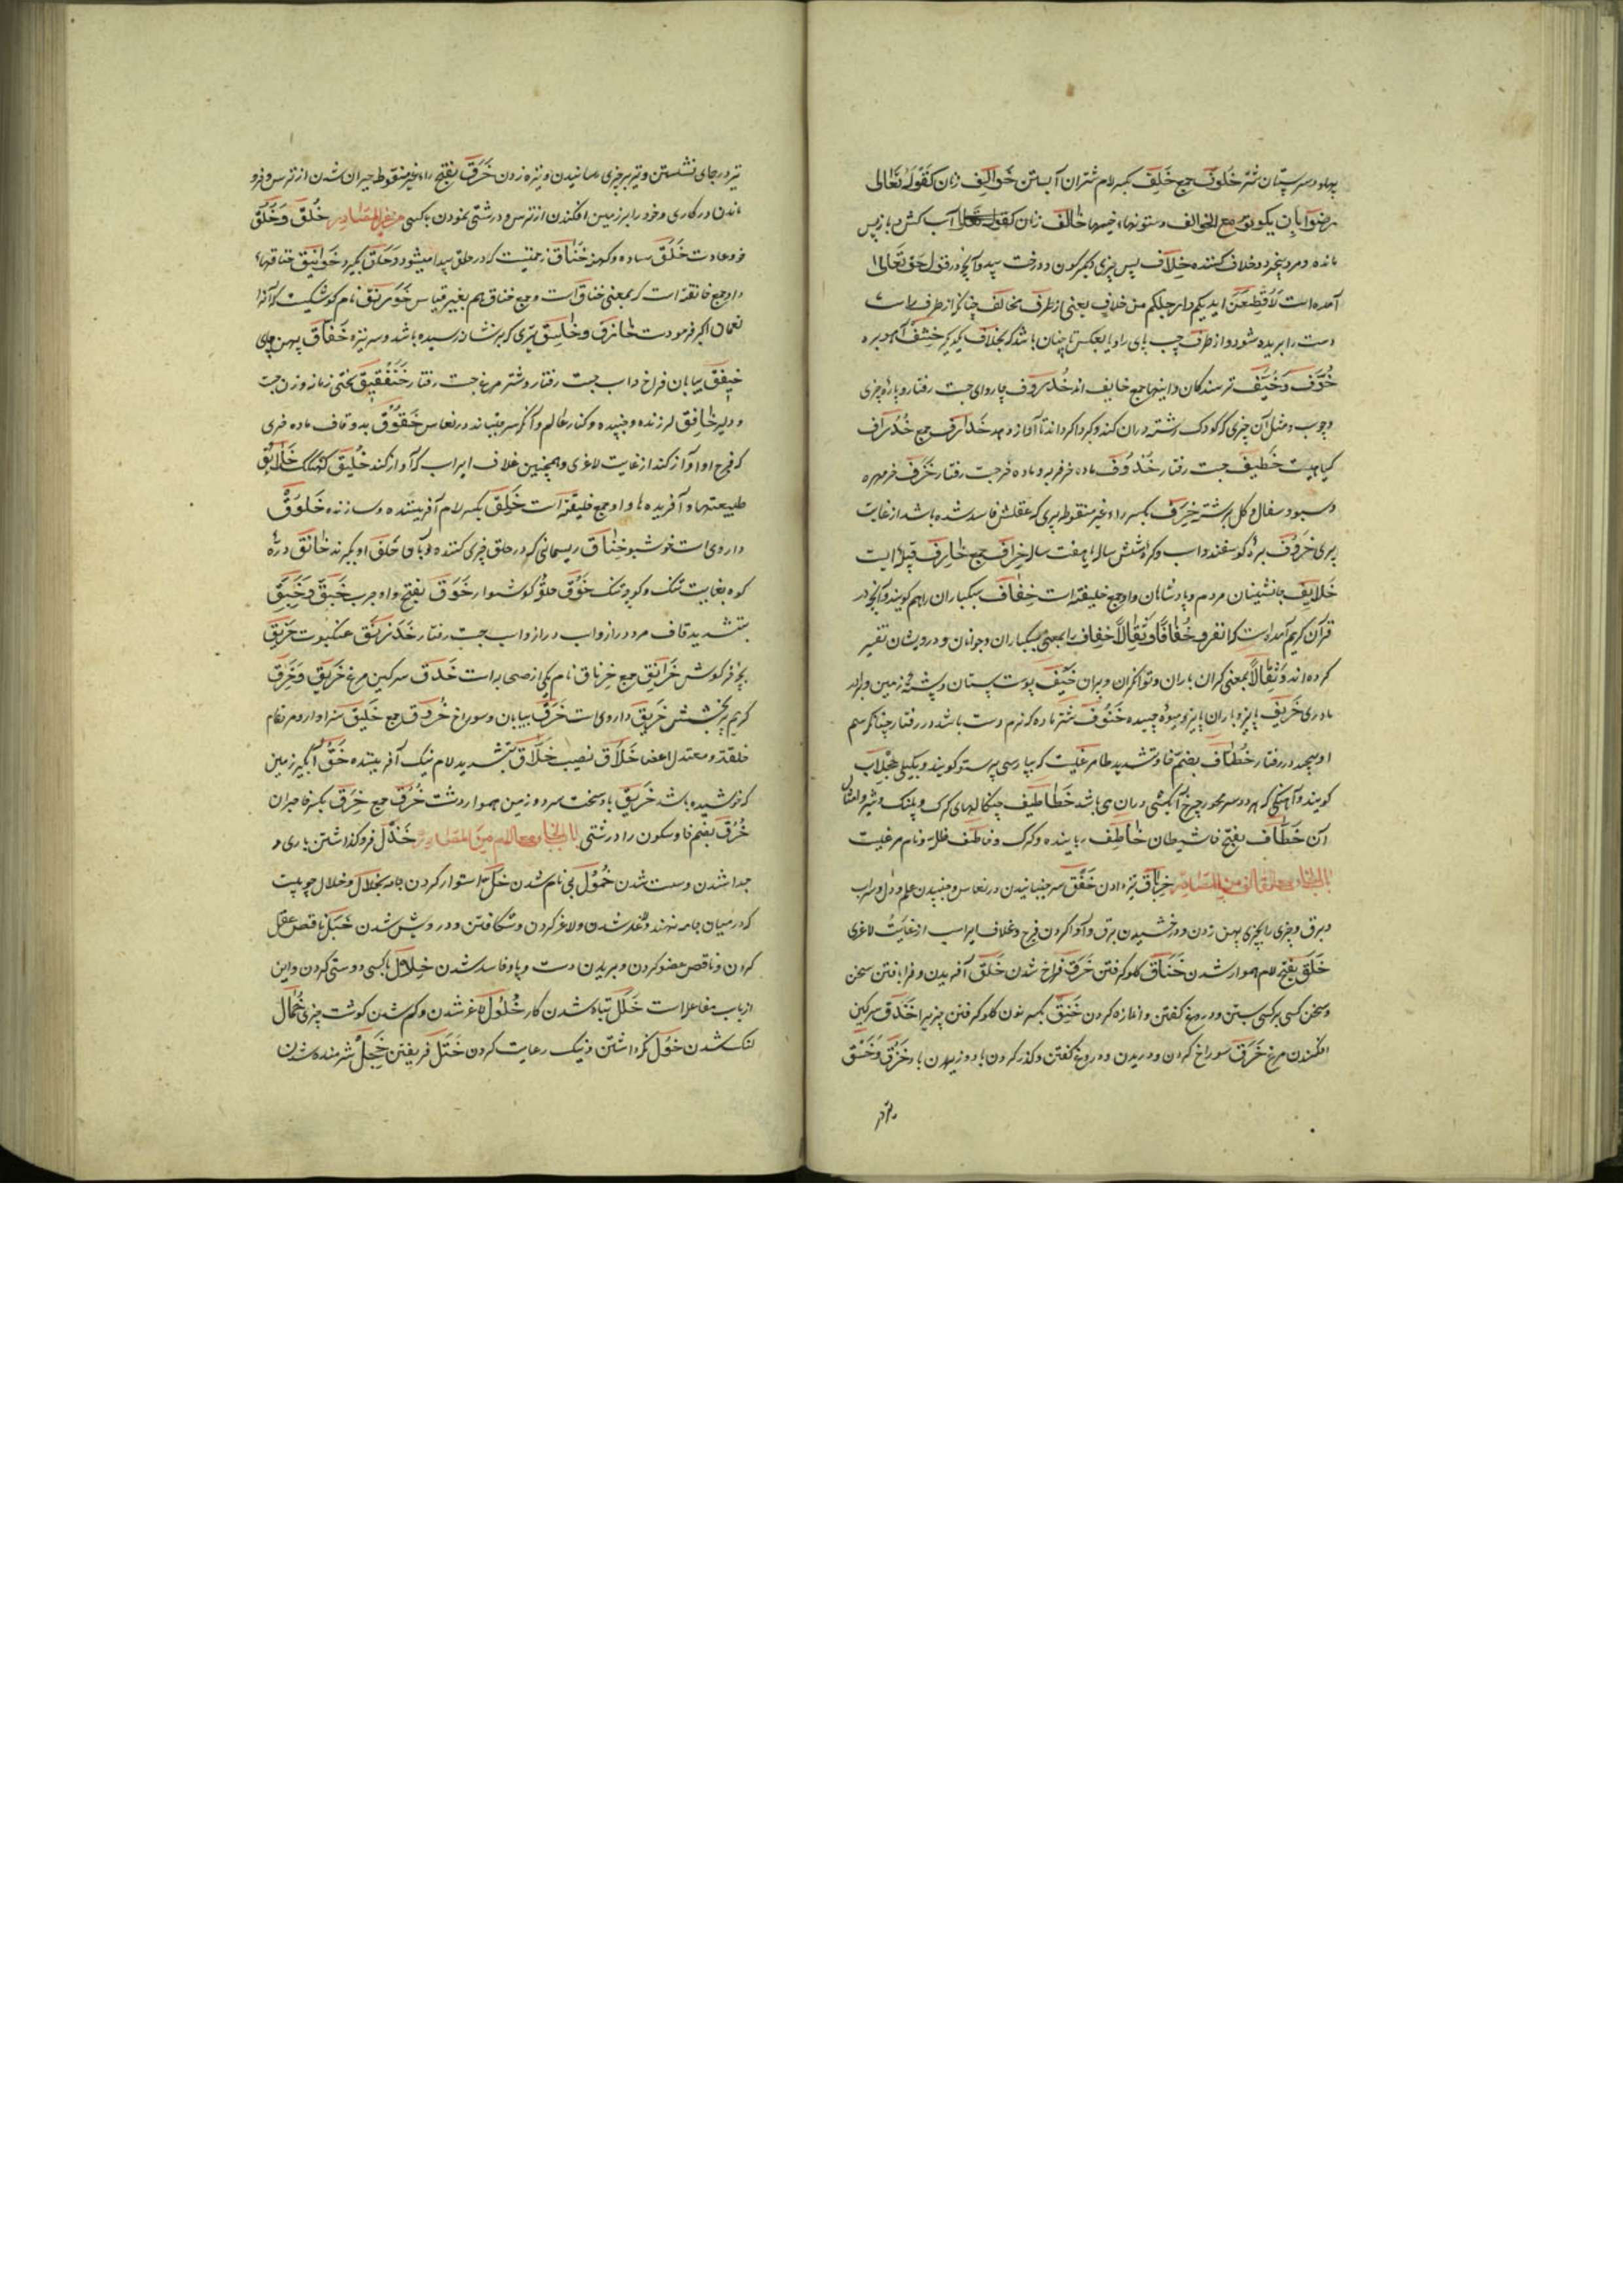 پهلو و سر پستان شتر خَلُوف جمع خَلِف بکسر لام شتران آبستن خَوالِف زنان کقوله تعالی
رضوا بان یکونوا مع الخوالف و ستونهاء خیمها خالف زنان کقوله تعالی آب کش و باز پس
مانده و مرد بیخرد و خلاف کننده خِلاف پس چیزی دیگرگون و درخت بید و آنچه در قول حق تعالی
آمده است لَاُقَطِّعَنَّ ایدیکم و ارجلکم من خلاف یعنی از طرف مخالف چنانکه از طرف راست
دست را بریده شود و از طرف چپ پای را و یا بعکس تا چنان باشد که بخلاف یکدیگر خِشف آهو بره
خُوَّف وَ خُیَّف ترسندکان و اینها جمع خایف اند خُذروف چاروای جست رفتار و پارۀ چیزی
و چوب و مثل آن چیزی که کودک رشته دران کند و کرداکرد اند تا آواز دهد خَذارِف جمع خُذراف
کیاهیست خَطیف جست رفتار خَنذوَف ماده خر فربه و ماده خر جست رفتار خَزَف خرمهره
و سبو و سفال و کل سرشته خَرِف بکسر راء غیر منقوطه پیری که عقلش فاسد شده باشد از غایت
پیری خَروف برۀ کوسفند و اسب و کرۀ شش ساله یا هفت ساله خِراف جمع خارِف قبیلۀ ایست
خَلایِف جانشینان مردم و پادشاهان و او جمع خلیفة است خِفاف سبکباران را هم کویند و آنچه در
قرآن کریم آمده است که انفروا خِفافًا وَ ثِقالًا خفاف را بمعنی سبکباران و جوانان و درویشان تفسیر
کرده اند و ثِقالًا بمعنی کران باران و توانکران و پیران خَیف پوست پستان و پشتۀ زمین و برادر
مادری خَریف پاییز و باران پاییز و میوۀ چیده خَنُوف شتر ماده که نرم دست باشد در رفتار چنانکه سم
او پیچد در رفتار خُطّاف بضم خا و تشدید طا مرغیست که بپارسی پرستو کویند و بکیلی
کویند و آهنی که در دو سر محور چرخ آبکشی دران می باشد خَطاطیف چنکالهای کرک و پلنک و شیر و امثال
آن خَطّاف بفتح خا شیطان خاطِف رباینده و کرک و خاطف ظله نام مرغیست
باب الخاء مع القاف من المصادر خِزاق تیز دادن خَفق سر جنبانیدن در نعاس و جنبیدن علم و دل و سراب
و برق و چیزی را بچیزی پهن زدن و درخشیدن برق و آوا کردن فرج و غلاف اسب از غایت لاغری
خَلَق بفتح لام هموار شدن خِناق کلو کرفتن خَرق فراخ شدن خَلق آفریدن و فرا بافتن سخن
و سخن کسی بر کسی بستن و دروغ کفتن و اندازه کردن خَنِق بکسر نون کلو کرفتن چیزیرا خَذق سرکین
افکندن مرغ خَرق سوراخ کردن و دریدن و دروغ کفتن و کذر کردن باد وزیدن باد خَزق وَ خَسق
تیر در جای نشستن و تیر بر چیزی رسانیدن و نیزه زدن خَرَق بفتح راء غیر منقوطه حیران شدن از ترس و فرو
ماندن در کاری و خود را بر زمین افکندن از ترس و درشتی نمودن با کسی من غیر المصادر خُلق وَ خُلُق
خو و عادت خَلَق ساده و کهنه خُناق زحمتیست که در حلق پیدا میشود و حلق بگیرد خَوانیق خناقها
و او جمع خانقة است که بمعنی خناق است و جمع خناق هم بغیر قیاس خَوَرنَق نام کوشکیست که آنرا
نعمان اکبر فرمودست خازِق و خاسِق تیری که بر نشان رسیده باشد و سر نیزه خَفّاق پهن پای
خَیفَق بیابان فراخ و اسب جست رفتار و شتر مرغ جست رفتار خَنفَقیق سختی زمانه و زن جست
و دلیر خافِق لرزنده و جنبیده و کنار عالم و آنکه سر جنباند در نعاس خَقوق بدو قاف ماده خری
که فرج او آواز کند از غایت لاغری و همچنین غلاف اسب که آواز کند خَلیق خَلایِق
طبیعتها و آفریده ها و او جمع خلیقة است خَلِق بکسر لام آفریننده و سازنده خَلوق
داروی است خوشبو خِناق ریسمانی که در حلق چیزی کننده و با آن حلق او بگیرند خانِق درّۀ
کوه بغایت تنک و کوچۀ تنک خَوق حلقۀ کوشوار خَوَق بفتح واو جرب خِبَقّ وَ خِبِقّ
بتشدید قاف مرد دراز و اسب دراز و اسب جست رفتار خَدَرنَق عنکبوت خِرنِق
بچۀ خرکوش خَرانِق جمع خِرباق نام یکی از صحابه است خَذق سرکین مرغ خِرّیق وَ خِرق
کریم پر بخشش خَربَق داروی است خَرق بیابان و سوراخ خُروق جمع خَلیق سزاوار و مرد تمام
خلقة و معتدل اعضا خَلاق نصیب خلّاق بتشدید لام نیک آفریننده خَقّ آبگیر زمین
که خوشیده باشد خَریق باد سخت سرد و زمین هموار و دشت خُرُق جمع خِرَق بکسر خا حیران
خُرق بضم خا و سکون را درشتی باب الخاء مع اللام من المصادر خَذل فرو کذاشتن یاری و
جدا شدن و سست شدن خُمُول بی نام شدن خَلّ استوار کردن جامه بخلال و خلال چوبیست
که در میان جامه نهند و شدن و لاغر کردن و شکافتن و درویش شدن خَبل ناقص عقل
کردن و ناقص عضو کردن و بریدن دست و پا و فاسد شدن خِلال با کسی دوستی کردن و این
از باب مفاعلة است خَلَل تباه شدن کار خُلول لاغر شدن و کم شدن کوشت چیزی خُمال
لنک شدن خَول نکه داشتن و نیک رعایت کردن خَتل فریفتن خَجَل شرمنده شدن